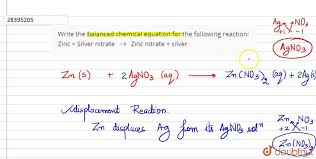 28395205
Write the balanced chemical equation for the following reaction:
Zinc + Silver nitrate → Zinc nitrate + silver
Ag NO3
+1 -1
AgNO3
Zn(s) + 2AgNO3 (aq) → Zn(NO3)2 (aq) + 2Ag
displacement Reaction.
Zn displaces Ag from its AgNO3 solⁿ
Zn NO3
+2 -1
Zn(NO3)2
doubtnut